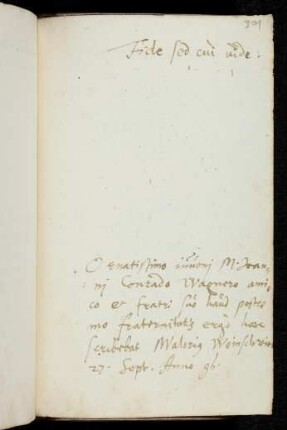 Fide sed cui vide.
Ornatissimo iuueni M. Joan-
ni Conrado Wagnero ami-
co et fratri suo haud postre-
mo fraternitatis ergo haec
scribebat
27. Sept. Anno 96.